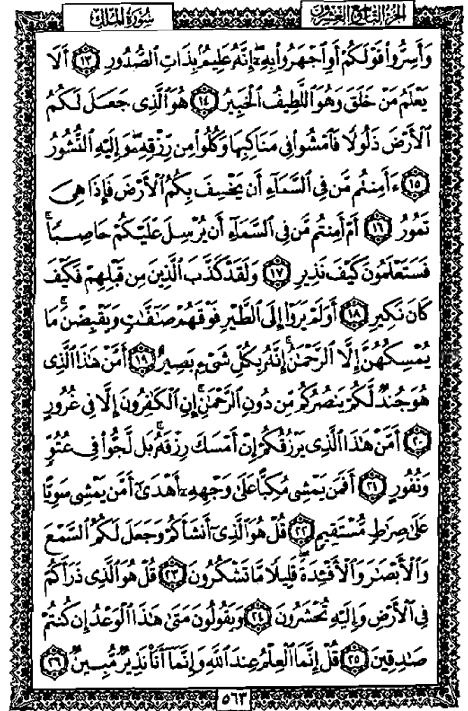 سُورَةُ المُلْكِ الجُزءُ التَّاسِعُ وَالعِشْرُونَ
وَأَسِرُّوا۟ قَوْلَكُمْ أَوِ ٱجْهَرُوا۟ بِهِۦٓ إِنَّهُۥ عَلِيمٌۢ بِذَاتِ ٱلصُّدُورِ ١٣ أَلَا
يَعْلَمُ مَنْ خَلَقَ وَهُوَ ٱللَّطِيفُ ٱلْخَبِيرُ ١٤ هُوَ ٱلَّذِى جَعَلَ لَكُمُ
ٱلْأَرْضَ ذَلُولًا فَٱمْشُوا۟ فِى مَنَاكِبِهَا وَكُلُوا۟ مِن رِّزْقِهِۦ وَإِلَيْهِ ٱلنُّشُورُ
١٥ ءَأَمِنتُم مَّن فِى ٱلسَّمَآءِ أَن يَخْسِفَ بِكُمُ ٱلْأَرْضَ فَإِذَا هِىَ
تَمُورُ ١٦ أَمْ أَمِنتُم مَّن فِى ٱلسَّمَآءِ أَن يُرْسِلَ عَلَيْكُمْ حَاصِبًا
فَسَتَعْلَمُونَ كَيْفَ نَذِيرِ ١٧ وَلَقَدْ كَذَّبَ ٱلَّذِينَ مِن قَبْلِهِمْ فَكَيْفَ
كَانَ نَكِيرِ ١٨ أَوَلَمْ يَرَوْا۟ إِلَى ٱلطَّيْرِ فَوْقَهُمْ صَٰٓفَّٰتٍ وَيَقْبِضْنَ مَا
يُمْسِكُهُنَّ إِلَّا ٱلرَّحْمَٰنُ إِنَّهُۥ بِكُلِّ شَىْءٍۭ بَصِيرٌ ١٩ أَمَّنْ هَٰذَا ٱلَّذِى
هُوَ جُندٌ لَّكُمْ يَنصُرُكُم مِّن دُونِ ٱلرَّحْمَٰنِ إِنِ ٱلْكَٰفِرُونَ إِلَّا فِى غُرُورٍ
٢٠ أَمَّنْ هَٰذَا ٱلَّذِى يَرْزُقُكُمْ إِنْ أَمْسَكَ رِزْقَهُۥ بَل لَّجُّوا۟ فِى عُتُوٍّ
وَنُفُورٍ ٢١ أَفَمَن يَمْشِى مُكِبًّا عَلَىٰ وَجْهِهِۦٓ أَهْدَىٰٓ أَمَّن يَمْشِى سَوِيًّا
عَلَىٰ صِرَٰطٍ مُّسْتَقِيمٍ ٢٢ قُلْ هُوَ ٱلَّذِىٓ أَنشَأَكُمْ وَجَعَلَ لَكُمُ ٱلسَّمْعَ
وَٱلْأَبْصَٰرَ وَٱلْأَفْـِٔدَةَ قَلِيلًا مَّا تَشْكُرُونَ ٢٣ قُلْ هُوَ ٱلَّذِى ذَرَأَكُمْ
فِى ٱلْأَرْضِ وَإِلَيْهِ تُحْشَرُونَ ٢٤ وَيَقُولُونَ مَتَىٰ هَٰذَا ٱلْوَعْدُ إِن كُنتُمْ
صَٰدِقِينَ ٢٥ قُلْ إِنَّمَا ٱلْعِلْمُ عِندَ ٱللَّهِ وَإِنَّمَآ أَنَا۠ نَذِيرٌ مُّبِينٌ ٢٦
٥٦٣